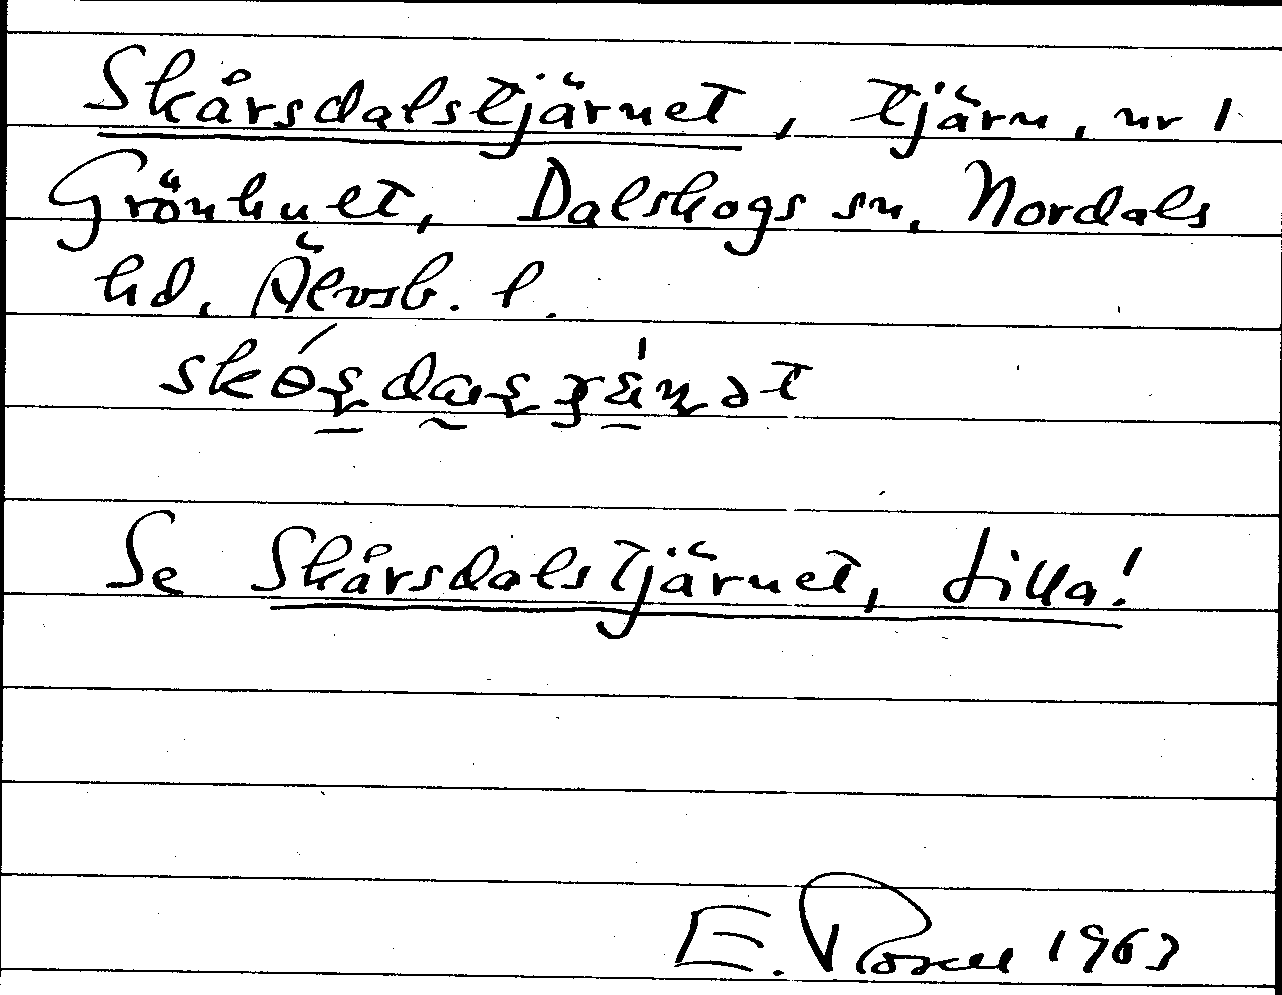 Skårsdalstjärnet, tjärn, nr 1
Grönhult, Dalskogs sn, Nordals
hd, Älvsb. l.
Se Skårsdalstjärnet, Lilla!
E. Rosell 1963